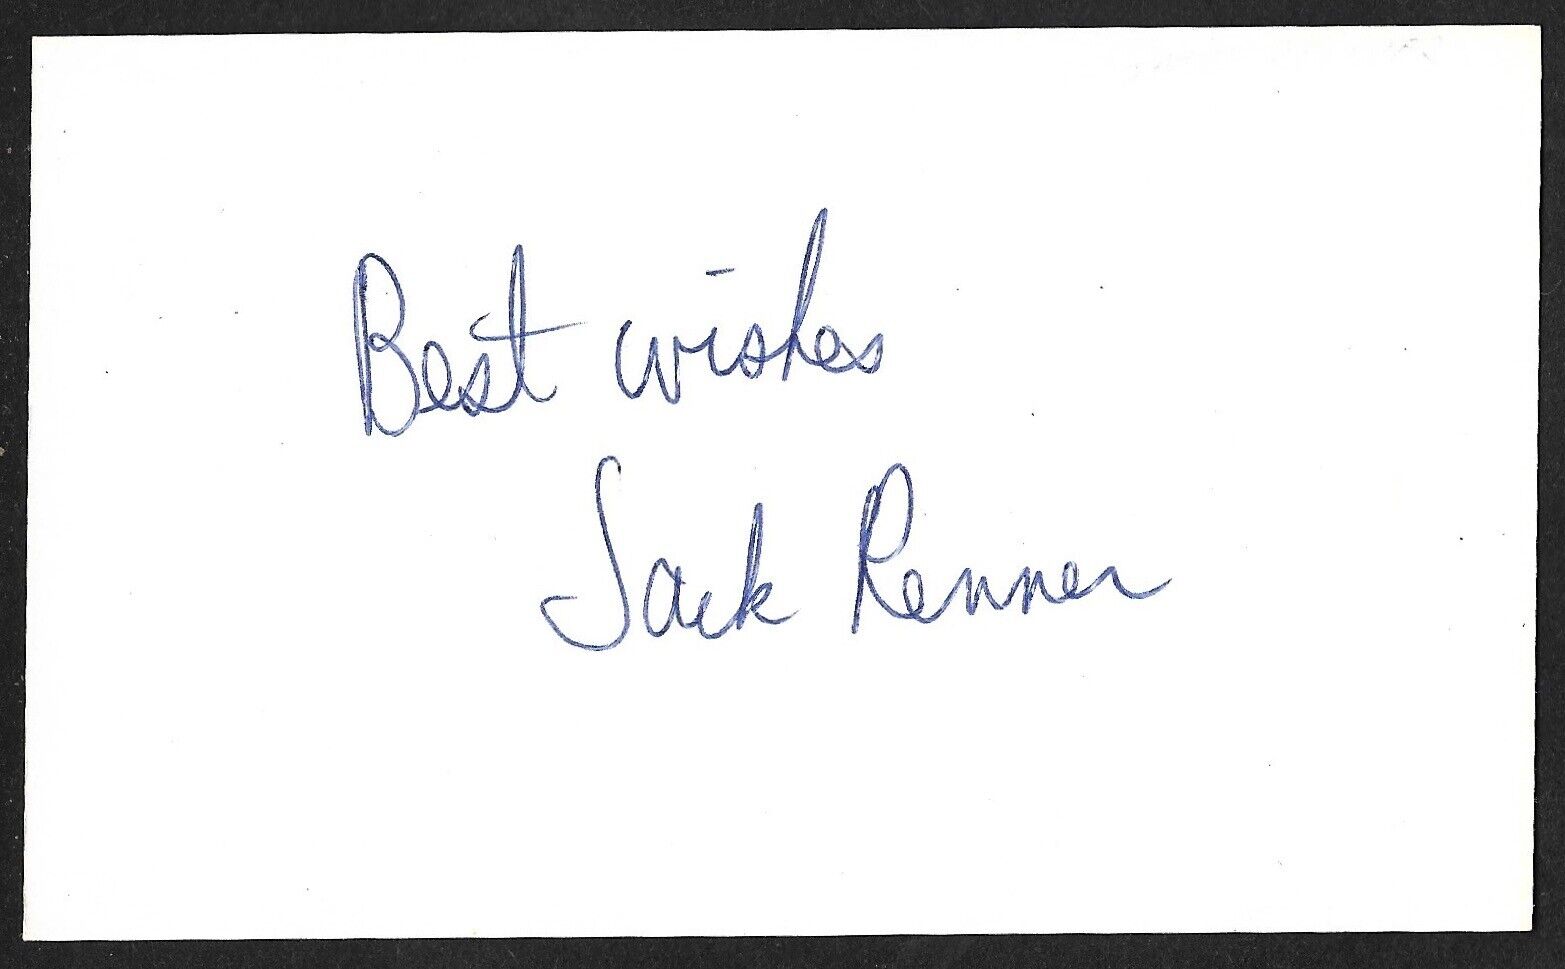 Best wishes
Jack Renner